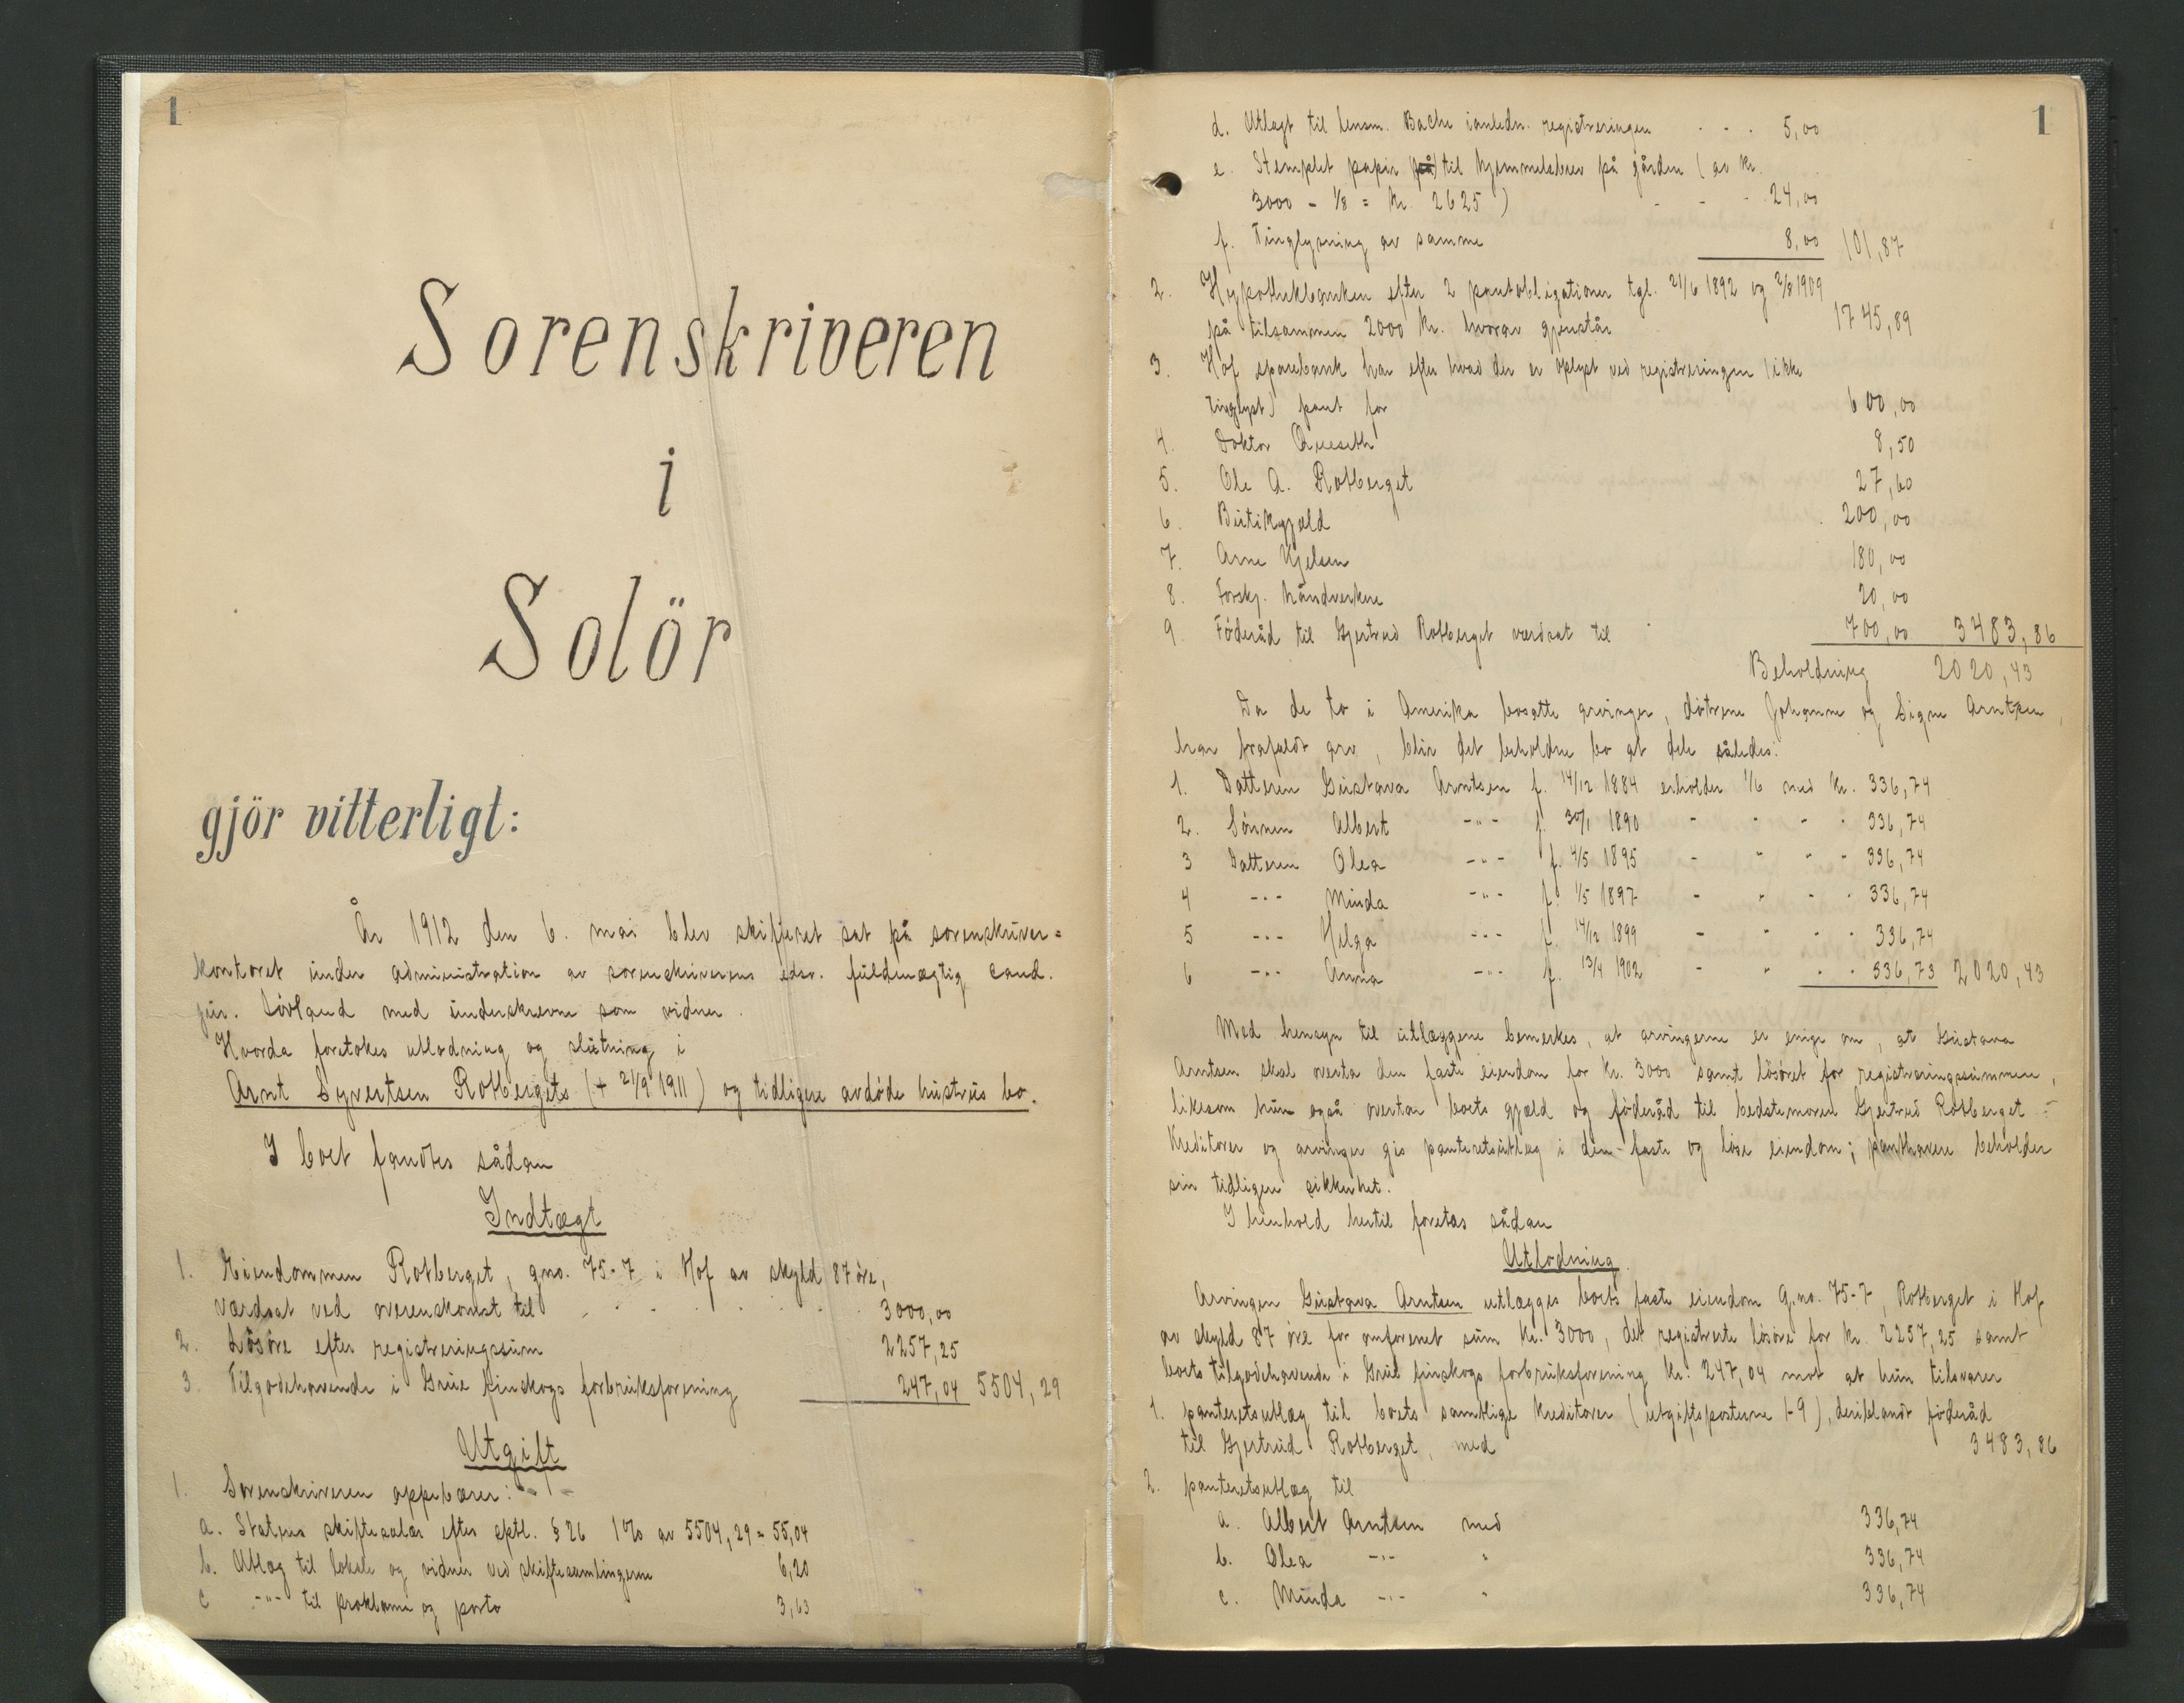 1
Sorenskriveren
i
Solör
gjör vitterligt:
År 1912 den 6. mai blev skifteret sat på sorenskriver=
kontoret under administration av sorenskriverens edsv. fuldmægtig cand.
jur. Lövland med underskrevne som vidner.
Hvorda foretokes utlodning og slutning i
Arnt Syvertsen Rotbergets († 21/9 1911) og tidligere avdöde hustrus bo.
I boet fandtes sådan
Indtægt
1. Eiendommen Rotberget, gno. 75-7 i Hof av skyld 87 öre,
værdsat ved overenskomst til 3000,00
2. Lösöre efter registreringssum 2257,25
3. Tilgodehavende i Grue Finskogs forbruksforening 247,04 5504,29
Utgift
1. Sorenskriveren oppebærer:
a. Statens skiftesalær efter sptl. § 26 1% av 5504,29 = 55,04
b. Utlæg til lokale og vidner ved skiftesamlingerne 6,20
c -"- til proklama og porto 3,63
1
d. Utlagt til lensm. Bache ianledn. registreringen - - - 5,00
e. Stemplet papir (på) til hjemmelsbrev på gården (av kr.
3000 - 1/8 = kr. 2625) - - - 24,00
f. Tinglysning av samme 8,00 101,87
2. Hypothekbanken efter 2 pantobligationer tgl. 21/6 1892 og 2/8 1909
på tilsammen 2000 kr. hvorav gjenstår 1745,89
3. Hof sparebank har efter hvad der er oplyst ved registreringen (ikke
tinglyst) pant for 600,00
4. Doktor 8,50
5. Ole A. Rotberget 27,60
6. Butikgjæld 200,00
7. Arne Kjelsen 180,00
8. Forskj. håndverkere 20,00
9. Föderåd til Gjertrud Rotberget værdsat til 700,00 3483,86
Beholdning 2020,43
Da de to i Amerika bosatte arvinger, döttrene Johanne og Signe Arntsen,
har frafaldt arv, blir det beholdne bo at dele således:
1. Datteren Gustava Arntsen f. 14/12 1884 erholder 1/6 med kr. 336,74
2. Sönnen Albert -"- f. 30/1 1890 - - - - 336,74
3 Datteren Olea -"- f. 4/5 1895 - " - - 336,74
4 -"- Minda -"- f. 1/5 1897 - " - - 336,74
5 -"- Helga -"- f. 14/12 1899 - " - - 336,74
6 -"- Anna -"- f. 13/4 1902 - " - - 336,73 2020,43
Med hensyn til utlæggene bemerkes, at arvingerne er enige om, at Gustava
Arntsen skal overta den faste eiendom for kr. 3000 samt lösöret for registreringssummen,
likesom hun også overtar boets gjæld og föderåd til bedstemoren Gjertrud Rotberget -
Kreditorer og arvinger gis panteretsutlæg i den faste og löse eiendom; panthavere beholder
sin tidligere sikkerhet.
I henhold hertil foretas sådan
Utlodning.
Arvingen Gustava Arntsen utlægges boets faste eiendom G.no. 75-7, Rotberget i Hof
av skyld 87 öre for omforenet sum kr. 3000, det registrerte lösöre for kr. 2257,25 samt
boets tilgodehavende i Grue finskogs forbruksforening kr. 247,04 mot at hun tilsvarer
1. panteretsutlæg til boets samtlige kreditorer (utgiftsposterne 1-9), deriblandt föderåd
til Gjertrud Rotberget, med 3483,86
2. panteretsutlæg til
a. Albert Arntsen med 336,74
b. Olea -"- " 336,74
c. Minda -"- " 336,74